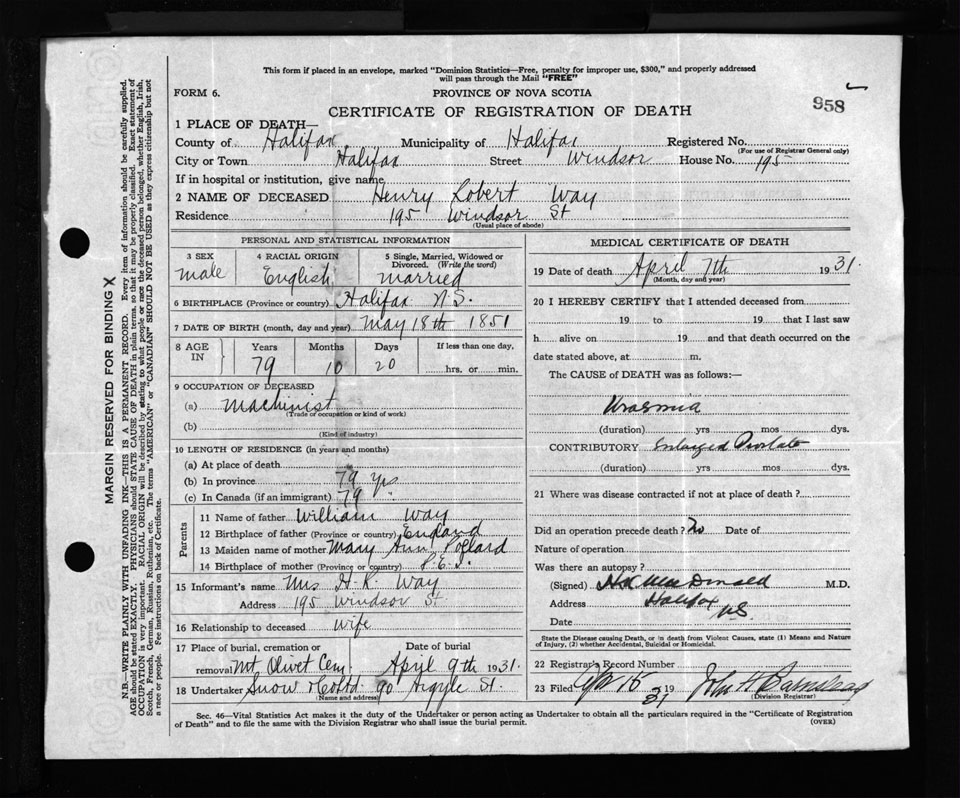 This form if placed in an envelope, marked "Dominion Statistics—Free, penalty for improper use, $300," and properly addressed
will pass through the Mail "FREE"
FORM 6. PROVINCE OF NOVA SCOTIA
958
CERTIFICATE OF REGISTRATION OF DEATH
1 PLACE OF DEATH—
County of Halifax Municipality of Halifax Registered No.
(For use of Registrar General only)
City or Town Halifax Street Windsor House No. 195
If in hospital or institution, give name
2 NAME OF DECEASED Henry Robert Way
Residence 195 Windsor St
(Usual place of abode)
PERSONAL AND STATISTICAL INFORMATION
3 SEX 4 RACIAL ORIGIN 5 Single, Married, Widowed or
Divorced. (Write the word)
Male English Married
6 BIRTHPLACE (Province or country) Halifax N.S.
7 DATE OF BIRTH (month, day and year) May 18th 1851
8 AGE IN Years Months Days If less than one day,
79 10 20 hrs. or min.
9 OCCUPATION OF DECEASED
(a) Machinist
(Trade or occupation or kind of work)
(b)
(Kind of industry)
10 LENGTH OF RESIDENCE (in years and months)
(a) At place of death
(b) In province 79 Yrs
(c) In Canada (if an immigrant) 79
Parents
11 Name of father William Way
12 Birthplace of father (Province or country) England
13 Maiden name of mother Mary Ann Pollard
14 Birthplace of mother (Province or country) P.E.I.
15 Informant's name Mrs H. R. Way
Address 195 Windsor St
16 Relationship to deceased Wife
17 Place of burial, cremation or Date of burial
removal Mt Olivet Cem April 9th 1931
18 Undertaker Snow & Co Ltd 90 Argyle St.
(Name and address)
MEDICAL CERTIFICATE OF DEATH
19 Date of death April 7th 1931.
(Month, day and year)
20 I HEREBY CERTIFY that I attended deceased from
19 to 19 that I last saw
h alive on 19 and that death occurred on the
date stated above, at m.
The CAUSE of DEATH was as follows:—
Uraemia
(duration) yrs mos dys.
CONTRIBUTORY Enlarged Prostate
(duration) yrs mos dys.
21 Where was disease contracted if not at place of death?
Did an operation precede death? No Date of
Nature of operation
Was there an autopsy?
(Signed) MacDonald M.D.
Address Halifax
N.S.
Date
State the Disease causing Death, or in death from Violent Causes, state (1) Means and Nature
of Injury, (2) whether Accidental, Suicidal or Homicidal.
22 Registrar's Record Number
23 Filed Apr 15 19 31 John H Barnstead
(Division Registrar)
Sec. 46—Vital Statistics Act makes it the duty of the Undertaker or person acting as Undertaker to obtain all the particulars required in the "Certificate of Registration
of Death" and to file the same with the Division Registrar who shall issue the burial permit. (OVER)
MARGIN RESERVED FOR BINDING X
N.B.—WRITE PLAINLY WITH UNFADING INK—THIS IS A PERMANENT RECORD. Every item of information should be carefully supplied.
AGE should be stated EXACTLY. PHYSICIANS should STATE CAUSE OF DEATH in plain terms, so that it may be properly classified. Exact statement of
OCCUPATION is very important. RACIAL ORIGIN will be described by stating to what people or race the deceased person belonged, whether English, Irish,
Scotch, French, German, Russian, Ruthenian, etc. The terms "AMERICAN" or "CANADIAN" SHOULD NOT BE USED as they express citizenship but not
a race or people. Fee instructions on back of Certificate.